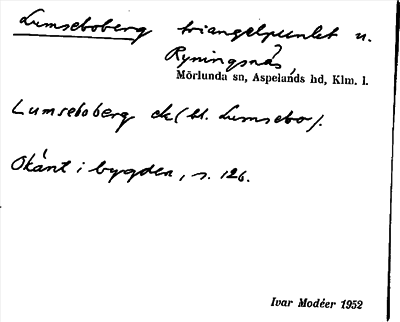 Lumseboberg triangelpunkt u.
Ryningsnäs,
Mörlunda sn, Aspelands hd, Klm. l.
Lumseboberg ek (bl. Lumsebo).
Okänt i bygden, s. 126.
Ivar Modéer 1952